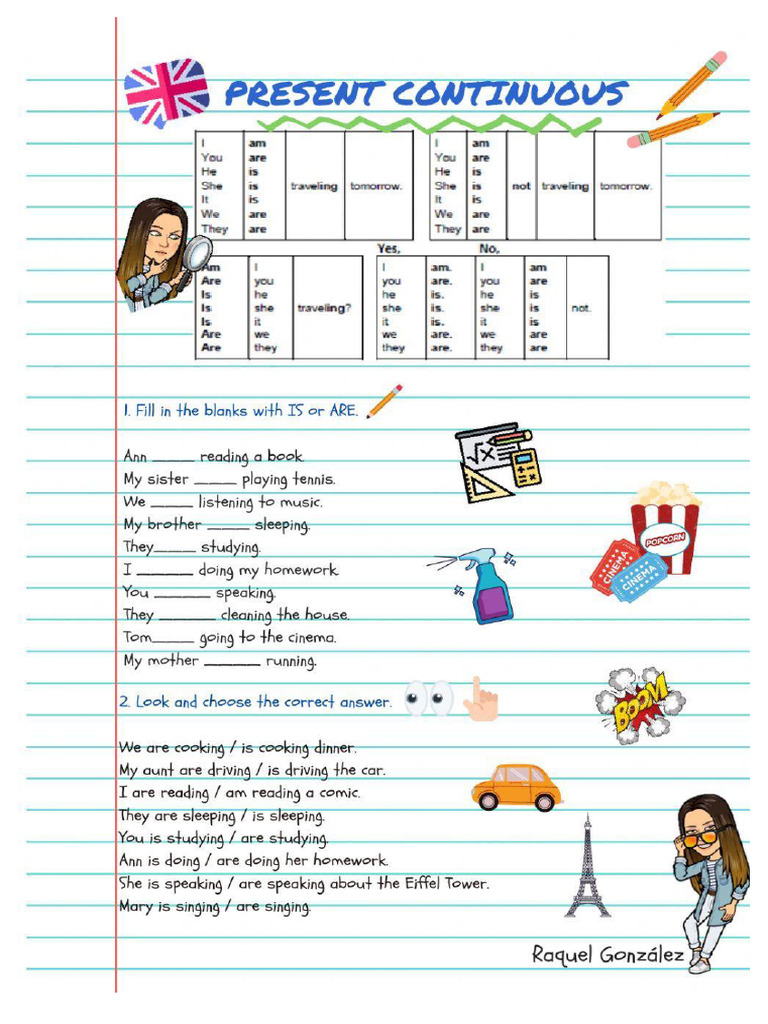 PRESENT CONTINUOUS
I am
You are
He is
She is traveling tomorrow.
It is
We are
They are
I am
You are
He is
She is not traveling tomorrow.
It is
We are
They are
Yes, No,
Am I
Are you
Is he
Is she traveling?
Is it
Are we
Are they
I am. I am
you are. you are
he is. he is
she is. she is not.
it is. it is
we are. we are
they are. they are
1. Fill in the blanks with IS or ARE.
Ann ______ reading a book.
My sister ______ playing tennis.
We ______ listening to music.
My brother ______ sleeping.
They______ studying.
I ________ doing my homework.
You ________ speaking.
They ________ cleaning the house.
Tom______ going to the cinema.
My mother ________ running.
POPCORN
CINEMA
CINEMA
2. Look and choose the correct answer.
BOOM
We are cooking / is cooking dinner.
My aunt are driving / is driving the car.
I are reading / am reading a comic.
They are sleeping / is sleeping.
You is studying / are studying.
Ann is doing / are doing her homework.
She is speaking / are speaking about the Eiffel Tower.
Mary is singing / are singing.
Raquel González